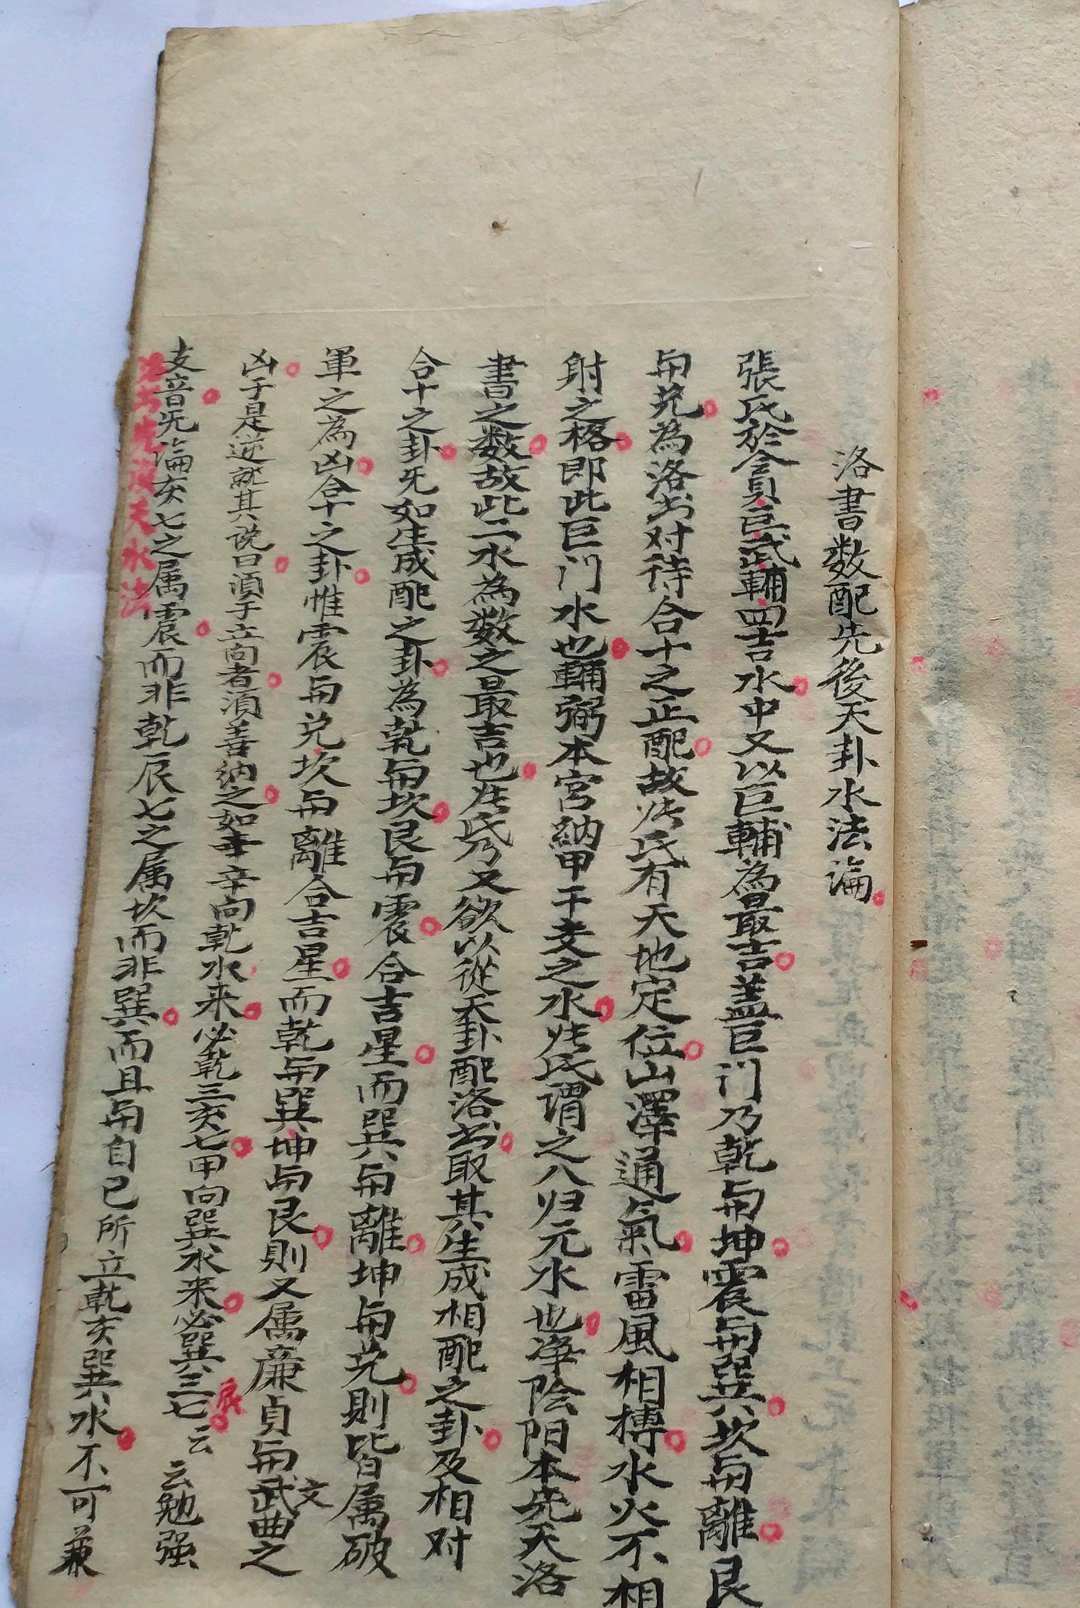 洛書數配先後天卦水法論
張氏於貪巨武輔四吉水中又以巨輔為最吉蓋巨门乃乾与坤震与巽坎与離艮
与兑為洛书对待合十之正配故张氏有天地定位山澤通氣雷風相搏水火不相
射之格即此巨门水也輔弼本宮納甲干支之水张氏谓之八归元水也净陰阳本先天洛
書之數故此二水為數之最吉也张氏又欲以從天卦配洛书取其生成相配之卦及相对
合十之卦先如生成配之卦為乾与坎艮与震合吉星而巽与離坤与兑則皆属破
軍之為凶合十之卦惟震与兑坎与離合吉星而乾与巽坤与艮則又属廉貞与武文曲之
凶于是逆就其说曰須于立向者須善納之如辛向乾水来必乾三亥七甲向巽水来必巽三辰七云云勉强
支音先論亥七之属震而非乾辰七之属坎而非巽而且与自己所立乾亥巽水不可兼
天水法